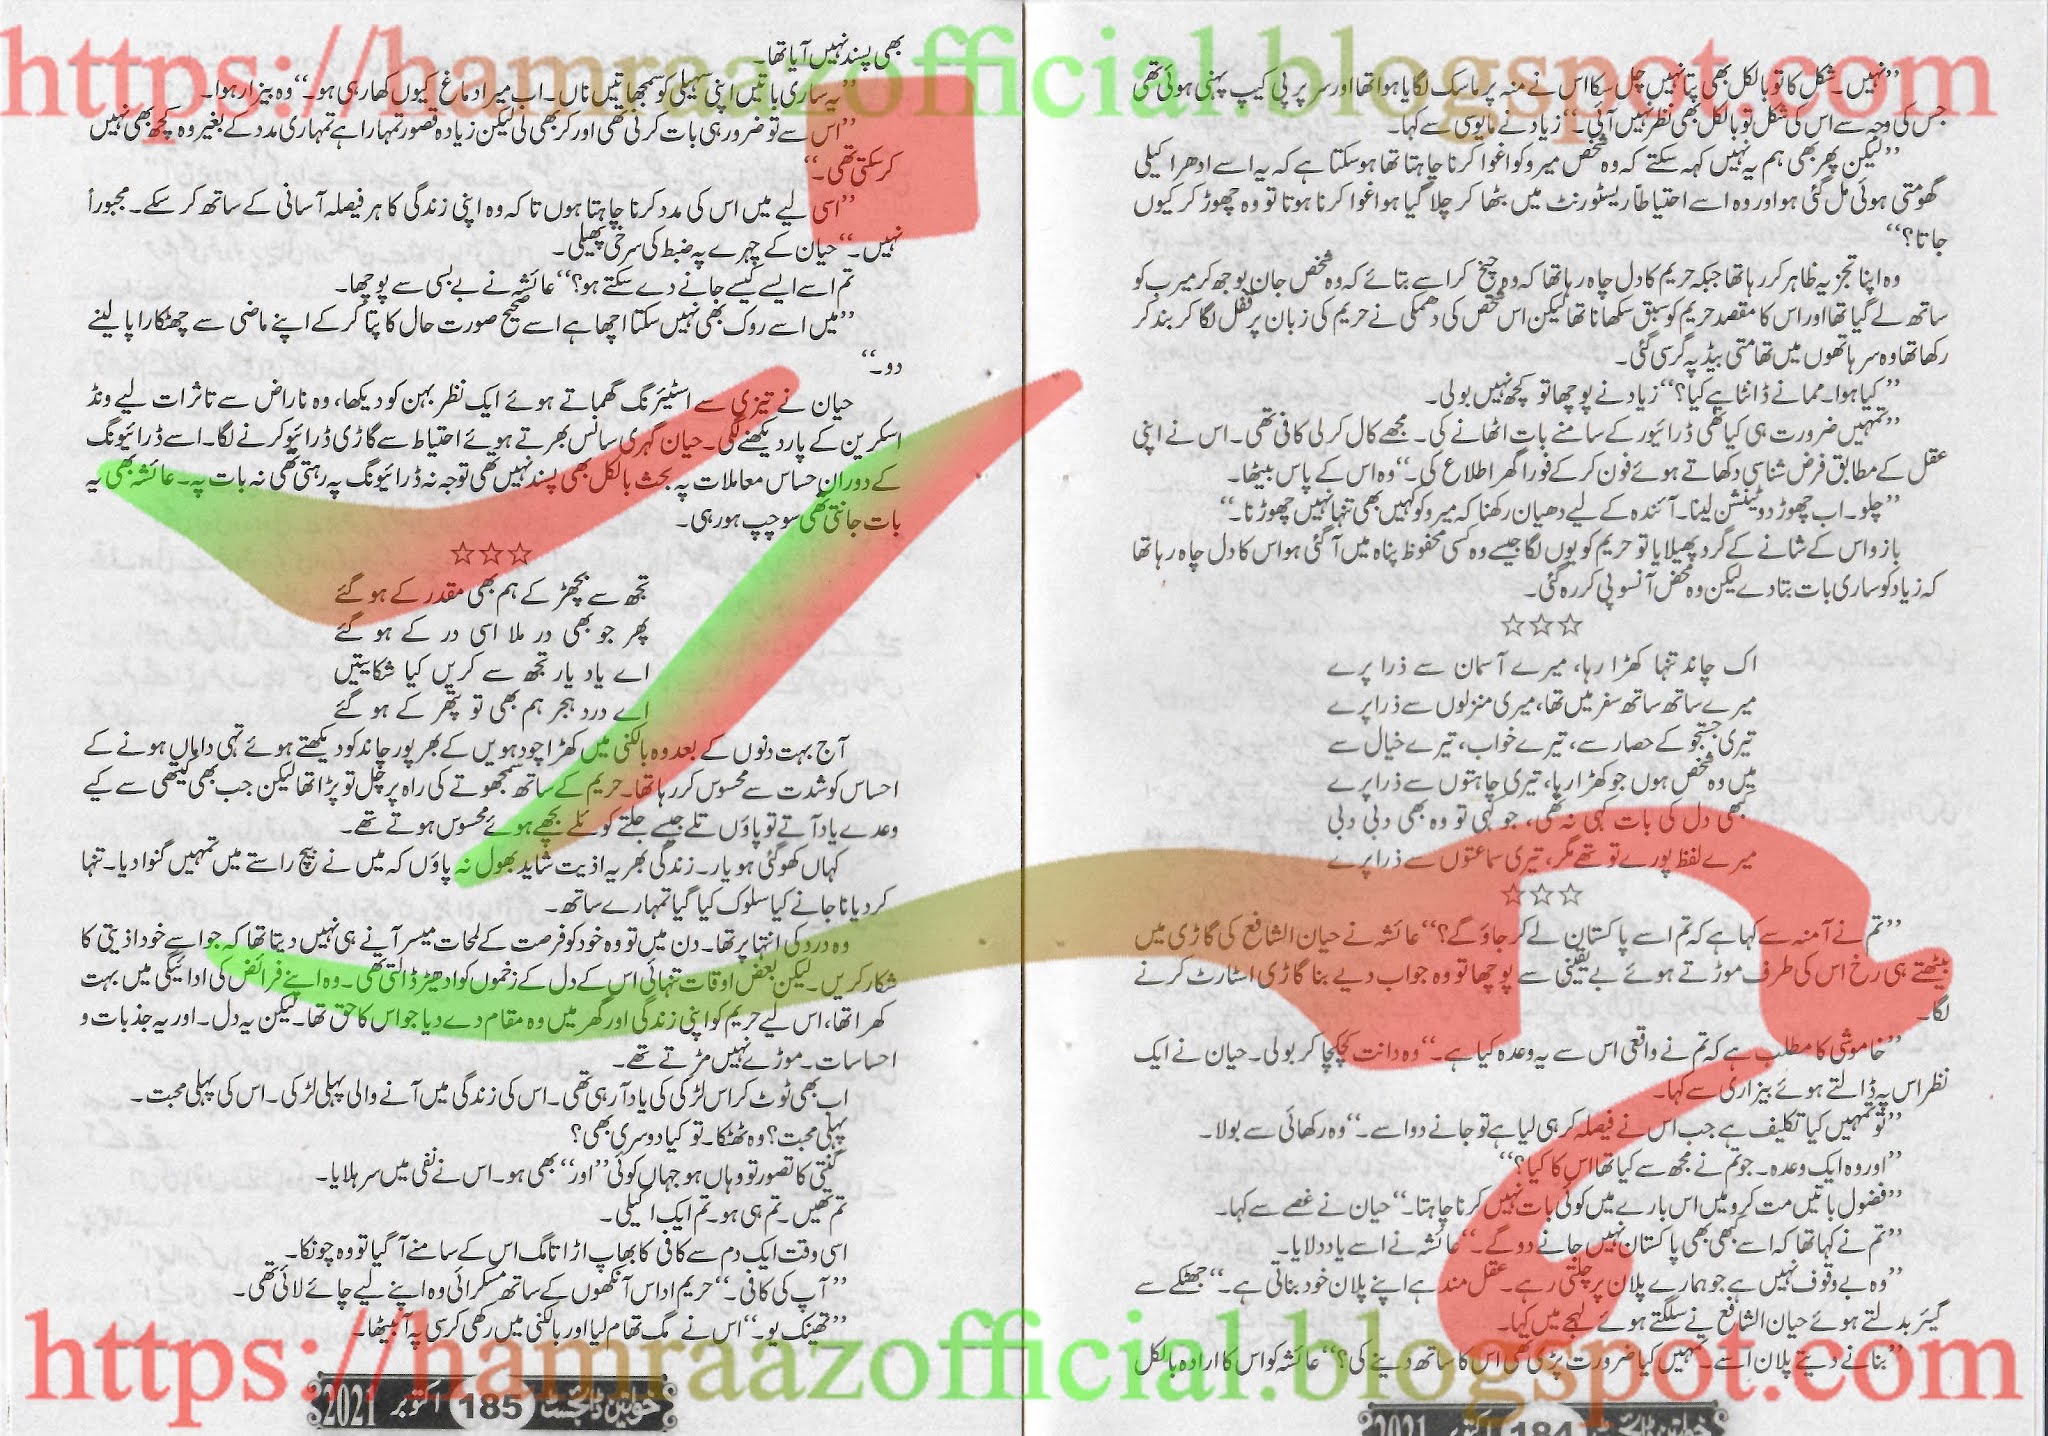 https://hamraazofficial.blogspot.com
’’نہیں۔ شکل کا تو بالکل بھی پتا نہیں چل سکا اس نے منہ پر ماسک لگایا ہوا تھا اور سر پر پی کیپ پہنی ہوئی تھی
جس کی وجہ سے اس کی شکل تو بالکل بھی نظر نہیں آئی۔‘‘ زیاد نے مایوسی سے کہا۔
’’لیکن پھر بھی ہم یہ نہیں کہہ سکتے کہ وہ شخص میرو کو اغوا کرنا چاہتا تھا ہو سکتا ہے کہ یہ اسے ادھر اکیلی
گھومتی ہوئی مل گئی ہو اور وہ اسے احتیاطاً ریسٹورنٹ میں بٹھا کر چلا گیا ہو اغوا کرنا ہوتا تو وہ چھوڑ کر کیوں
جاتا؟‘‘
وہ اپنا تجزیہ ظاہر کر رہا تھا جبکہ حریم کا دل چاہ رہا تھا کہ وہ چیخ کر اسے بتائے کہ وہ شخص جان بوجھ کر میرب کو
ساتھ لے گیا تھا اور اس کا مقصد حریم کو سبق سکھانا تھا لیکن اس شخص کی دھمکی نے حریم کی زبان پر قفل لگا کر بند کر
رکھا تھا وہ سر ہاتھوں میں تھامتی بیڈ پہ گر سی گئی۔
’’کیا ہوا۔ ممانے ڈانٹا ہے کیا؟‘‘ زیاد نے پوچھا تو کچھ نہیں بولی۔
’’تمہیں ضرورت ہی کیا تھی ڈرائیور کے سامنے بات اٹھانے کی۔ مجھے کال کر لی کافی تھی۔ اس نے اپنی
عقل کے مطابق فرض شناسی دکھاتے ہوئے فون کر کے فوراً گھر اطلاع کی۔‘‘ وہ اس کے پاس بیٹھا۔
’’چلو۔ اب چھوڑ دو ٹینشن لینا۔ آئندہ کے لیے دھیان رکھنا کہ میرو کو کہیں بھی تنہا نہیں چھوڑنا۔‘‘
بازو اس کے شانے کے گرد پھیلایا تو حریم کو یوں لگا جیسے وہ کسی محفوظ پناہ میں آ گئی ہو اس کا دل چاہ رہا تھا
کہ زیاد کو ساری بات بتا دے لیکن وہ محض آنسو پی کر رہ گئی۔
☆☆☆
اک چاند تنہا کھڑا رہا، میرے آسمان سے ذرا پرے
میرے ساتھ ساتھ سفر میں تھا، میری منزلوں سے ذرا پرے
تیری جستجو کے حصار سے، تیرے خواب، تیرے خیال سے
میں وہ شخص ہوں جو کھڑا رہا، تیری چاہتوں سے ذرا پرے
کبھی دل کی بات کہی نہ تھی، جو کہی تو وہ بھی دبی دبی
میرے لفظ پورے تو تھے مگر، تیری سماعتوں سے ذرا پرے
☆☆☆
’’تم نے آمنہ سے کہا ہے کہ تم اسے پاکستان لے کر جاؤ گے؟‘‘ عائشہ نے حیان الشافع کی گاڑی میں
بیٹھتے ہی رخ اس کی طرف موڑتے ہوئے بے یقینی سے پوچھا تو وہ جواب دیے بنا گاڑی اسٹارٹ کرنے
لگا۔
’’خاموشی کا مطلب ہے کہ تم نے واقعی اس سے یہ وعدہ کیا ہے۔‘‘ وہ دانت کچکچا کر بولی۔ حیان نے ایک
نظر اس پہ ڈالتے ہوئے بیزاری سے کہا۔
’’تو تمہیں کیا تکلیف ہے جب اس نے فیصلہ کر ہی لیا ہے تو جانے دو اسے۔‘‘ وہ رکھائی سے بولا۔
’’اور وہ ایک وعدہ۔ جو تم نے مجھ سے کیا تھا اس کا کیا؟‘‘
’’فضول باتیں مت کرو میں اس بارے میں کوئی بات نہیں کرنا چاہتا۔‘‘ حیان نے غصے سے کہا۔
’’تم نے کہا تھا کہ اسے کبھی بھی پاکستان نہیں جانے دو گے۔‘‘ عائشہ نے اسے یاد دلایا۔
’’وہ بے وقوف نہیں ہے جو ہمارے پلان پر چلتی رہے۔ عقل مند ہے اپنے پلان خود بناتی ہے۔‘‘ جھٹکے سے
گیئر بدلتے ہوئے حیان الشافع نے سلگتے ہوئے لہجے میں کہا۔
’’بنانے دیتے پلان اسے۔ تمہیں کیا ضرورت پڑی تھی اس کا ساتھ دینے کی؟‘‘ عائشہ کو اس کا ارادہ بالکل
خواتین ڈائجسٹ 184 اکتوبر 2021
بھی پسند نہیں آیا تھا۔
’’یہ ساری باتیں اپنی سہیلی کو سمجھاتیں ناں۔ اب میرا دماغ کیوں کھا رہی ہو۔‘‘ وہ بیزار ہوا۔
’’اس سے تو ضرور ہی بات کرنی تھی اور کر بھی لی لیکن زیادہ قصور تمہارا ہے تمہاری مدد کے بغیر وہ کچھ بھی نہیں
کر سکتی تھی۔‘‘
’’اسی لیے میں اس کی مدد کرنا چاہتا ہوں تا کہ وہ اپنی زندگی کا ہر فیصلہ آسانی کے ساتھ کر سکے۔ مجبوراً
نہیں۔‘‘ حیان کے چہرے پہ ضبط کی سرخی پھیلی۔
تم اسے ایسے کیسے جانے دے سکتے ہو؟‘‘ عائشہ نے بے بسی سے پوچھا۔
’’میں اسے روک بھی نہیں سکتا اچھا ہے اسے صحیح صورت حال کا پتا کر کے اپنے ماضی سے چھٹکارا پا لینے
دو۔‘‘
حیان نے تیزی سے اسٹیئرنگ گھماتے ہوئے ایک نظر بہن کو دیکھا، وہ ناراض سے تاثرات لیے ونڈ
اسکرین کے پار دیکھنے لگی۔ حیان گہری سانس بھرتے ہوئے احتیاط سے گاڑی ڈرائیو کرنے لگا۔ اسے ڈرائیونگ
کے دوران حساس معاملات پہ بحث بالکل بھی پسند نہیں تھی توجہ نہ ڈرائیونگ پہ رہتی تھی نہ بات پہ۔ عائشہ بھی یہ
بات جانتی تھی سو چپ ہو رہی۔
☆☆☆
تجھ سے بچھڑ کے ہم بھی مقدر کے ہو گئے
پھر جو بھی در ملا اسی در کے ہو گئے
اے یاد یار تجھ سے کریں کیا شکایتیں
اے درد ہجر ہم بھی تو پتھر کے ہو گئے
آج بہت دنوں کے بعد وہ بالکنی میں کھڑا چودہویں کے بھرپور چاند کو دیکھتے ہوئے تہی داماں ہونے کے
احساس کو شدت سے محسوس کر رہا تھا۔ حریم کے ساتھ سمجھوتے کی راہ پر چل تو پڑا تھا لیکن جب بھی کیتھی سے کیے
وعدے یاد آتے تو پاؤں تلے جیسے جلتے کوئلے بچھے ہوئے محسوس ہوتے تھے۔
کہاں کھو گئی ہو یار۔ زندگی بھر یہ اذیت شاید بھول نہ پاؤں کہ میں نے بیچ راستے میں تمہیں گنوا دیا۔ تنہا
کر دیا نا جانے کیا سلوک کیا گیا تمہارے ساتھ۔
وہ درد کی انتہا پر تھا۔ دن میں تو وہ خود کو فرصت کے لمحات میسر آنے ہی نہیں دیتا تھا کہ جو اسے خود اذیتی کا
شکار کریں۔ لیکن بعض اوقات تنہائی اس کے دل کے زخموں کو ادھیڑ ڈالتی تھی۔ وہ اپنے فرائض کی ادائیگی میں بہت
کھرا تھا، اس لیے حریم کو اپنی زندگی اور گھر میں وہ مقام دے دیا جو اس کا حق تھا۔ لیکن یہ دل۔ اور یہ جذبات و
احساسات۔ موڑے نہیں مڑتے تھے۔
اب بھی ٹوٹ کر اس لڑکی کی یاد آ رہی تھی۔ اس کی زندگی میں آنے والی پہلی لڑکی۔ اس کی پہلی محبت۔
پہلی محبت؟ وہ ٹھٹکا۔ تو کیا دوسری بھی؟
گنتی کا تصور تو وہاں ہو جہاں کوئی ’’اور‘‘ بھی ہو۔ اس نے نفی میں سر ہلایا۔
تم تھیں۔ تم ہی ہو۔ تم ایک اکیلی۔
اسی وقت ایک دم سے کافی کا بھاپ اڑاتا مگ اس کے سامنے آ گیا تو وہ چونکا۔
’’آپ کی کافی۔‘‘ حریم اداس آنکھوں کے ساتھ مسکرائی وہ اپنے لیے چائے لائی تھی۔
’’تھینک یو۔‘‘ اس نے مگ تھام لیا اور بالکنی میں رکھی کرسی پہ آ بیٹھا۔
خواتین ڈائجسٹ 185 اکتوبر 2021
https://hamraazofficial.blogspot.com